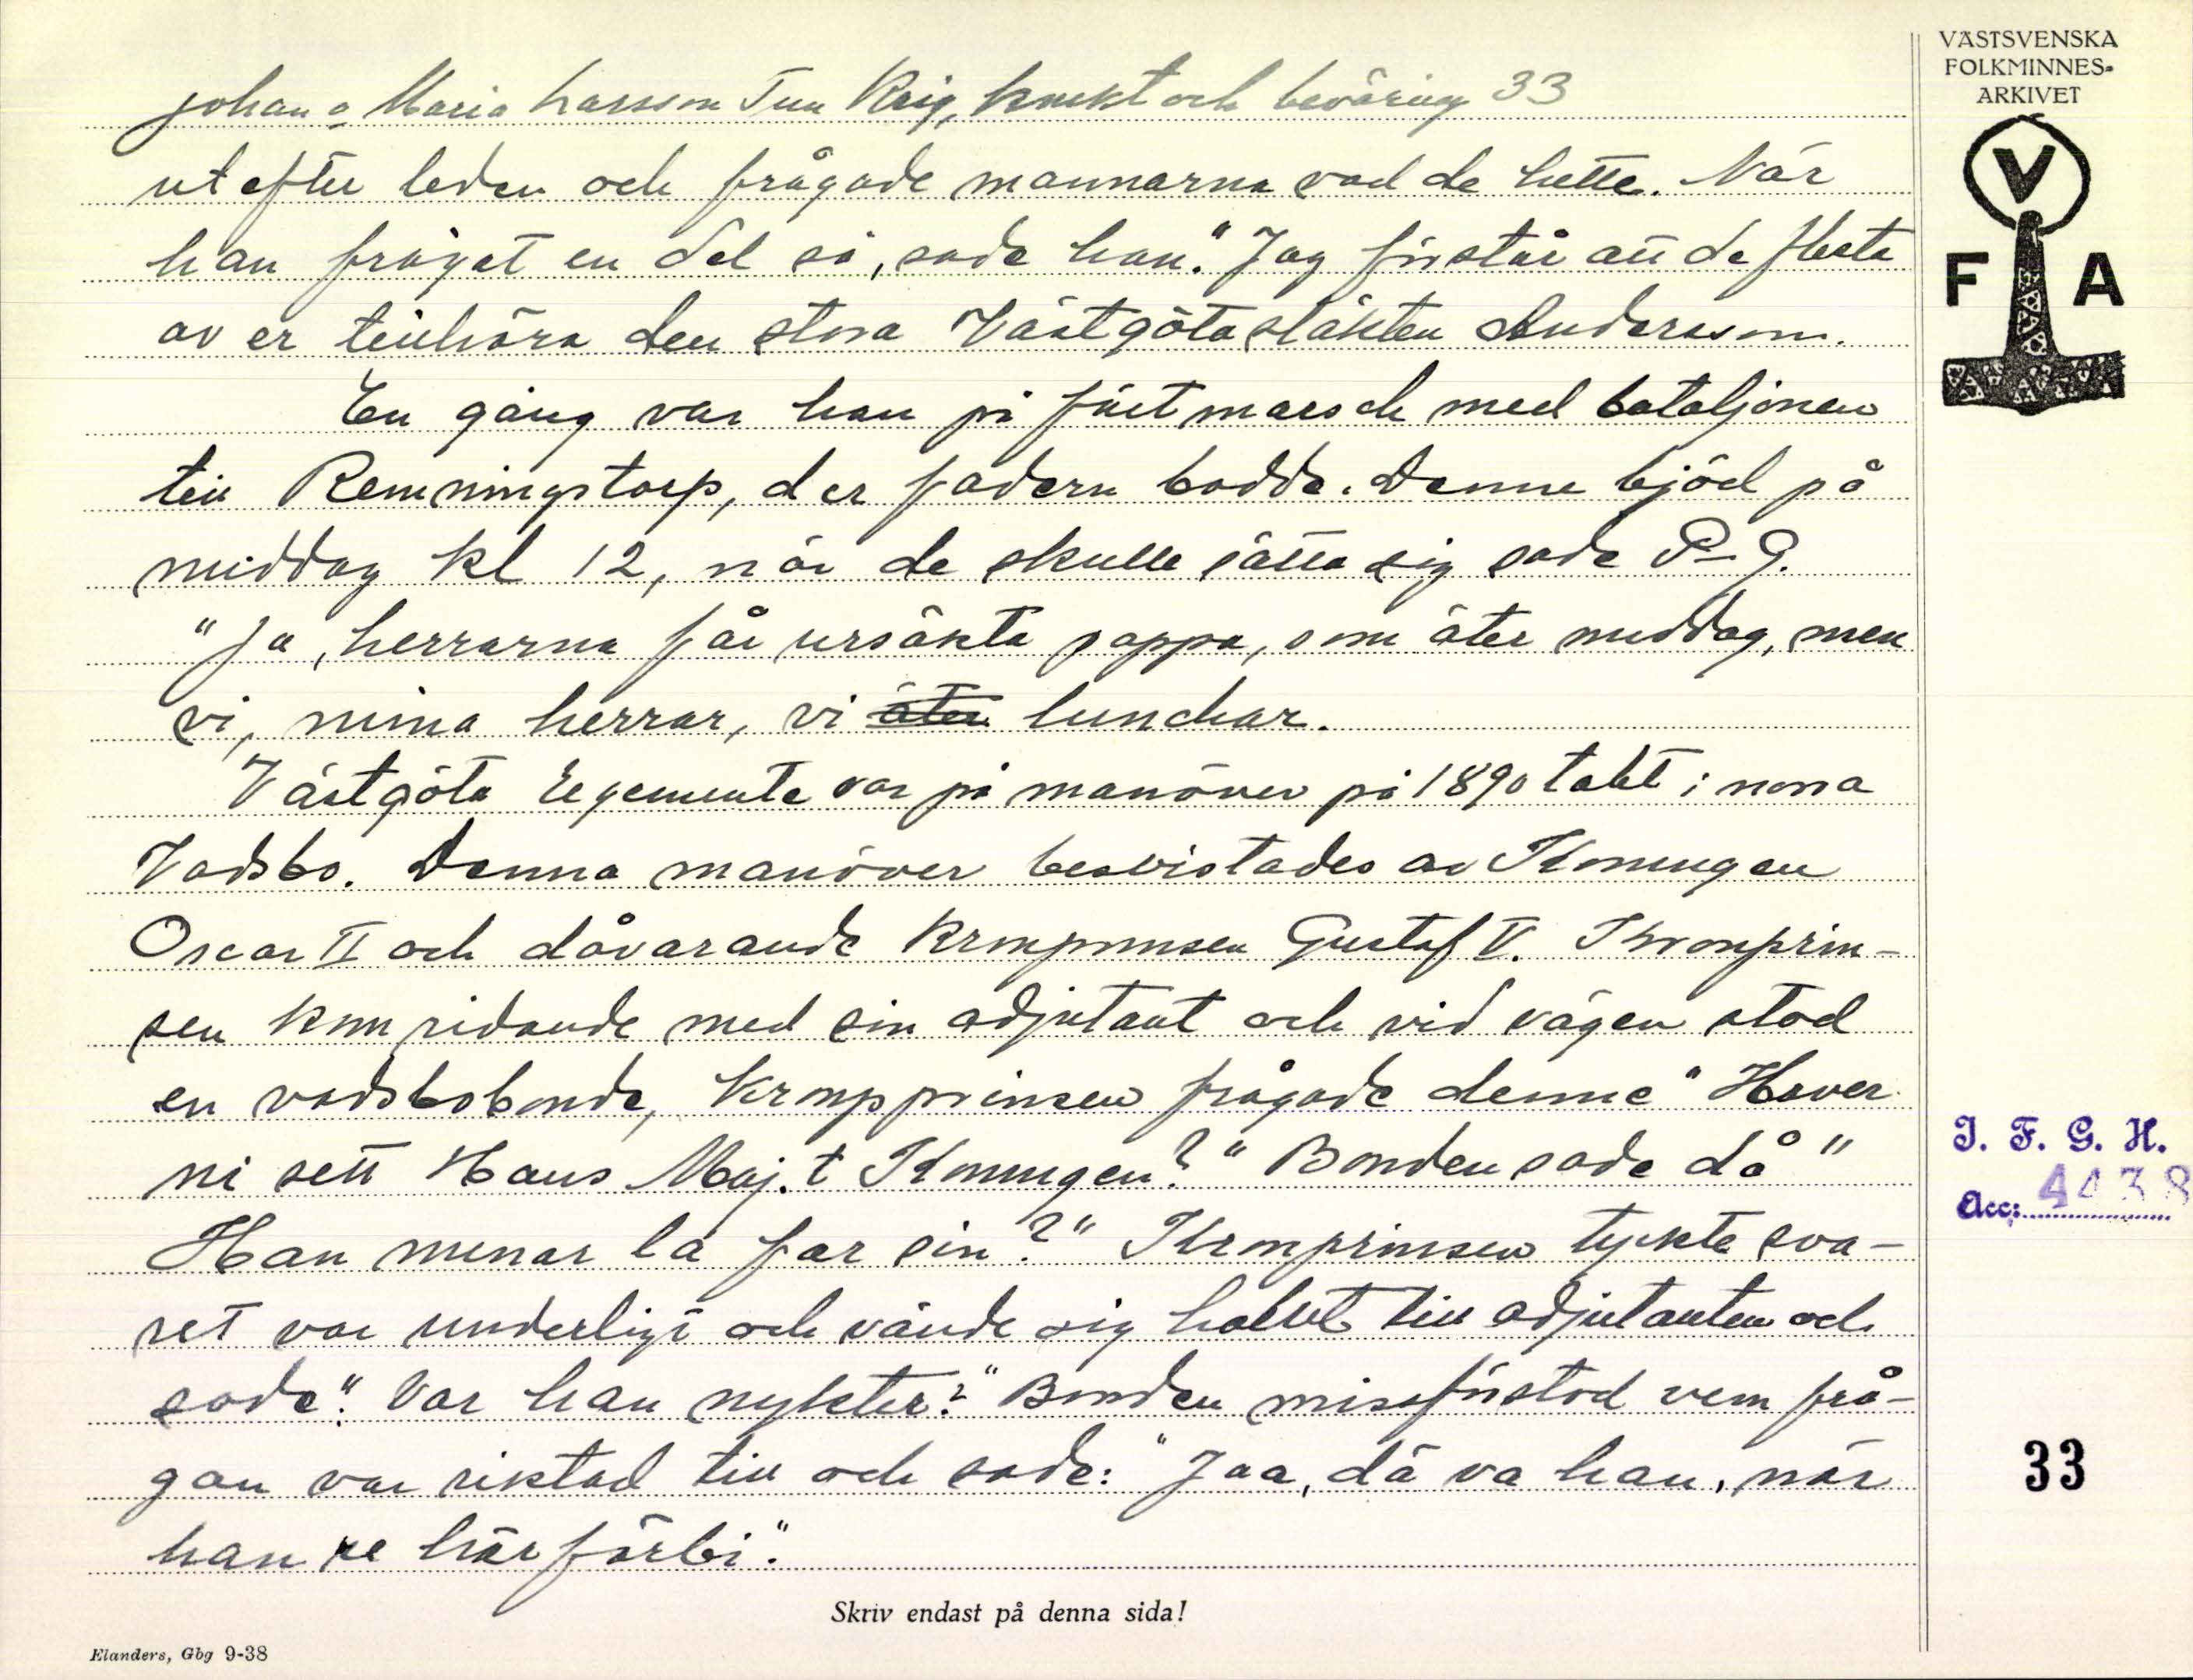 VÄSTSVENSKA
FOLKMINNES-
ARKIVET
V
F A
Johan o Maria Larsson Tun Krig, knekt och beväring 33
ut efter leden och frågade mannarna vad de hette. När
han frågat en del så, sade han." Jag förstår att de flesta
av er tillhöra den stora Västgötasläkten Andersson.
En gång var han på fältmarsch med bataljonen
till Remningstorp, der fadern bodde. Denne bjöd på
middag kl 12, när de skulle sätta sig sade P-G.
"Ja, herrarna får ursäkta pappa, som äter middag, men
vi, mina herrar, vi äter lunchar.
Västgöta regemente var på manöver på 1890 talet i norra
Vadsbo. Denna manöver bevistades av Konungen
Oscar II och dåvarande kronprinsen Gustaf V. Kronprin-
sen kom ridande med sin adjutant och vid vägen stod
en vadsbobonde, kronpprinsen frågade denne "Haver
ni sett Hans Maj.t Konungen?" Bonden sade då "
Han menar la far sin?" Kronprinsen tyckte sva-
ret var underligt och vände sig halvt till adjutanten och
sade". Var han nykter?" Bonden missförstod vem frå-
gan var riktad till och sade: "Jaa, dä va han, när
han re här förbi."
I. F. G. H.
Acc: 4438
33
Skriv endast på denna sida!
Elanders, Gbg 9-38